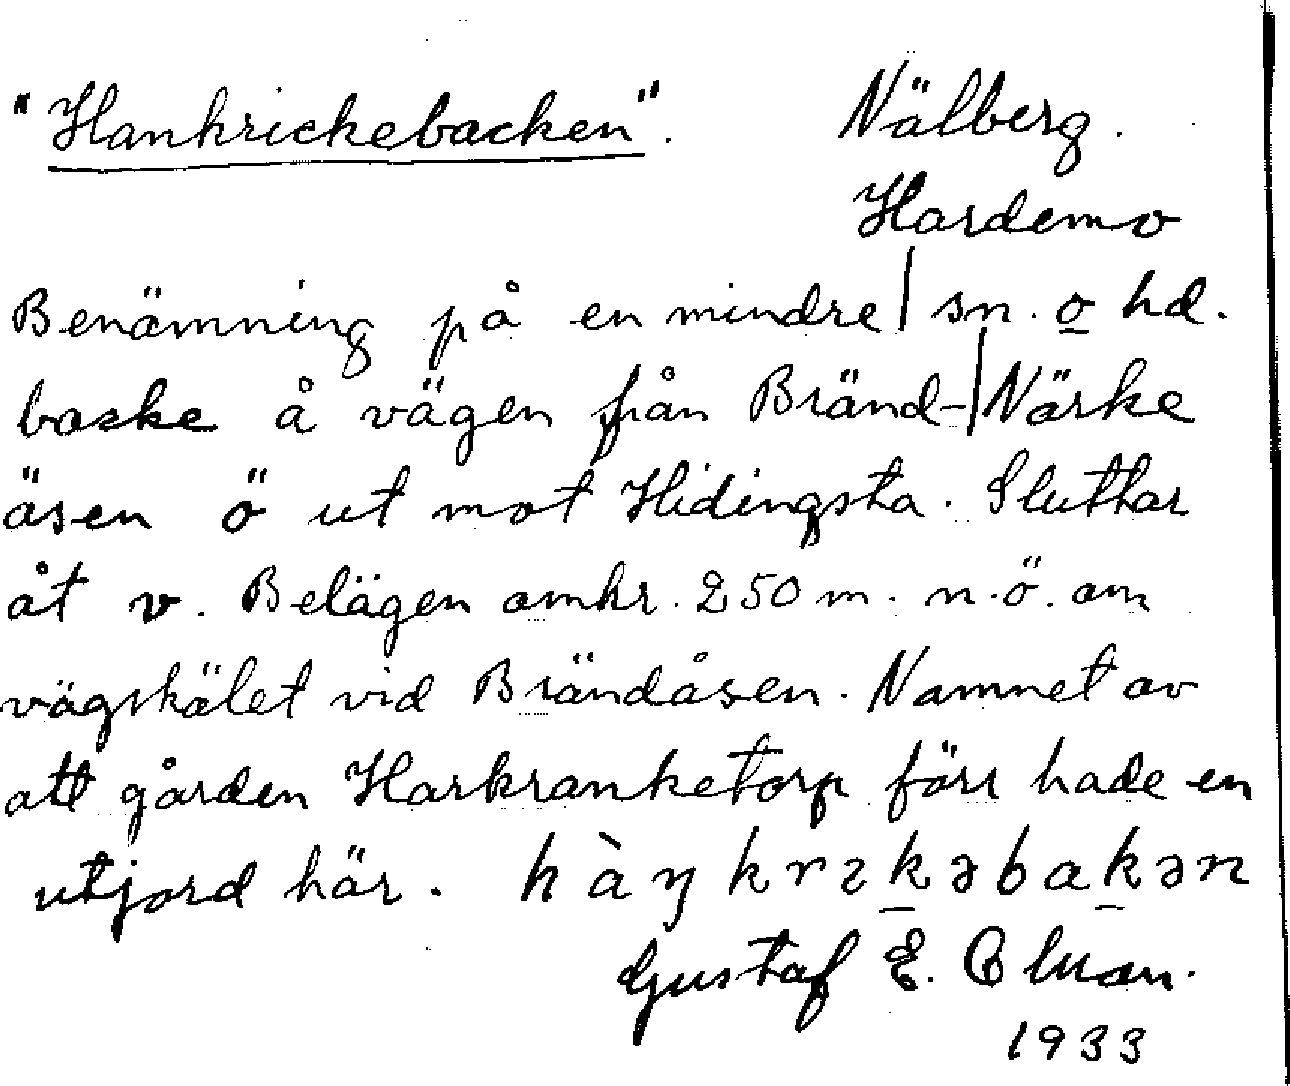 "Hankrickebacken". Nälberg.
Hardemo
Benämning på en mindre | sn. o hd.
backe å vägen från Bränd-| Närke
åsen ö ut mot Hidingsta. Sluttar
åt v. Belägen omkr. 250 m. n.ö. om
vägskälet vid Brändåsen. Namnet av
att gården Harkranketorp förr hade en
utjord här. hàŋkrɩkəbakən
Gustaf E.
1933